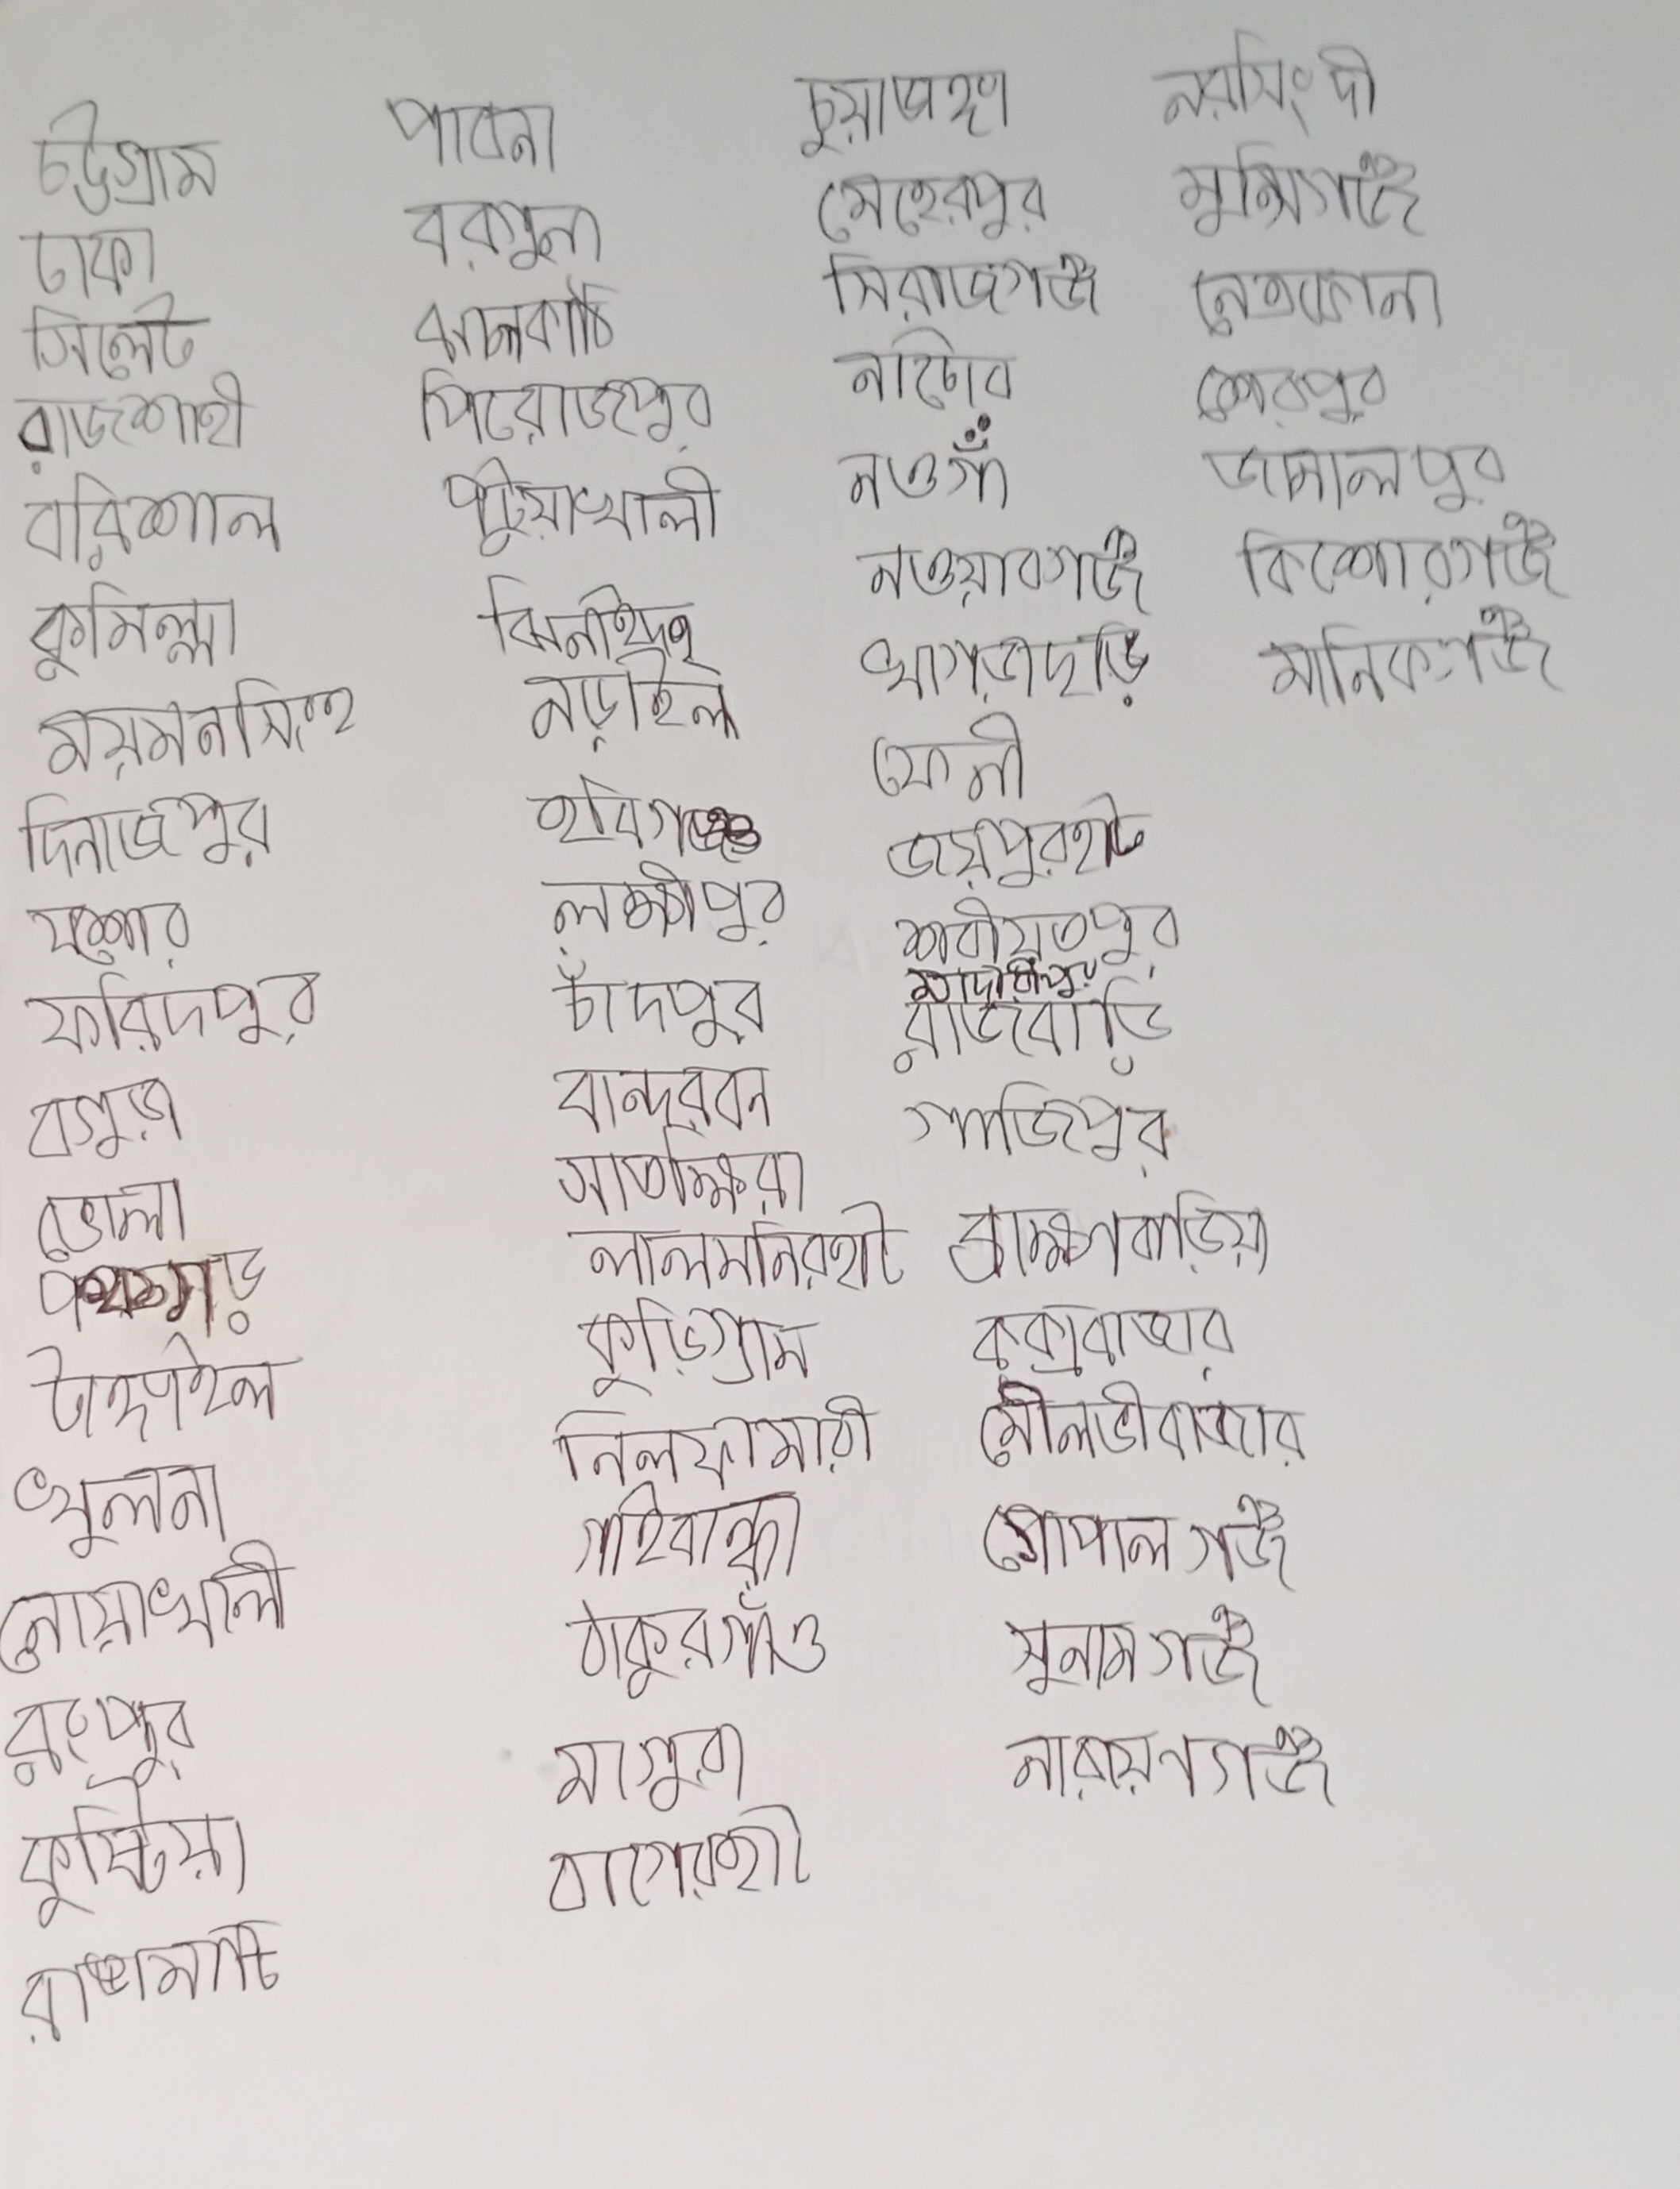 চট্টগ্রাম
ঢাকা
সিলেট
রাজশাহী
বরিশাল
কুমিল্লা
ময়মনসিংহ
দিনাজপুর
যশোর
ফরিদপুর
বগুড়া
ভোলা
পঞ্চগড়
টাঙ্গাইল
খুলনা
নোয়াখালী
রংপুর
কুষ্টিয়া
রাঙ্গামাটি
পাবনা
বরগুনা
ঝালকাঠি
পিরোজপুর
পটুয়াখালী
ঝিনাইদহ
নড়াইল
হবিগঞ্জ
লক্ষীপুর
চাঁদপুর
বান্দরবন
সাতক্ষিরা
লালমনিরহাট
কুড়িগ্রাম
নিলফামারী
গাইবান্ধা
ঠাকুরগাঁও
মাগুরা
বাগেরহাট
চুয়াডাঙ্গা
মেহেরপুর
সিরাজগঞ্জ
নাটোর
নওগাঁ
নওয়াবগঞ্জ
খাগড়াছড়ি
ফেনী
জয়পুরহাট
শরীয়তপুর
মাদারীপুর
রাজবাড়ি
গাজিপুর
ব্রাক্ষণবাড়িয়া
কক্সবাজার
মৌলভীবাজার
গোপালগঞ্জ
সুনামগঞ্জ
নারায়ণগঞ্জ
নরসিংদী
মুন্সিগঞ্জ
নেত্রকোনা
শেরপুর
জামালপুর
কিশোরগঞ্জ
মানিকগঞ্জ